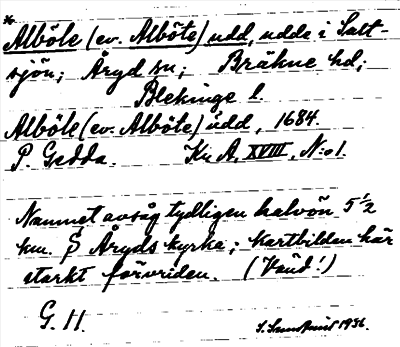 * Alböle (ev. Alböte) udd, udde i Salt-
sjön; Åryd sn; Bräkne hd;
Blekinge l.
Alböle (ev. Alböte) udd, 1684.
P. Gedda. Kv A. XVIII, N:o 1.
Namnet avsåg tydligen halvön 5 1/2
km. Åryds kyrka; kartbilden här
starkt förvriden. (Vänd!)
G. H.
1936.